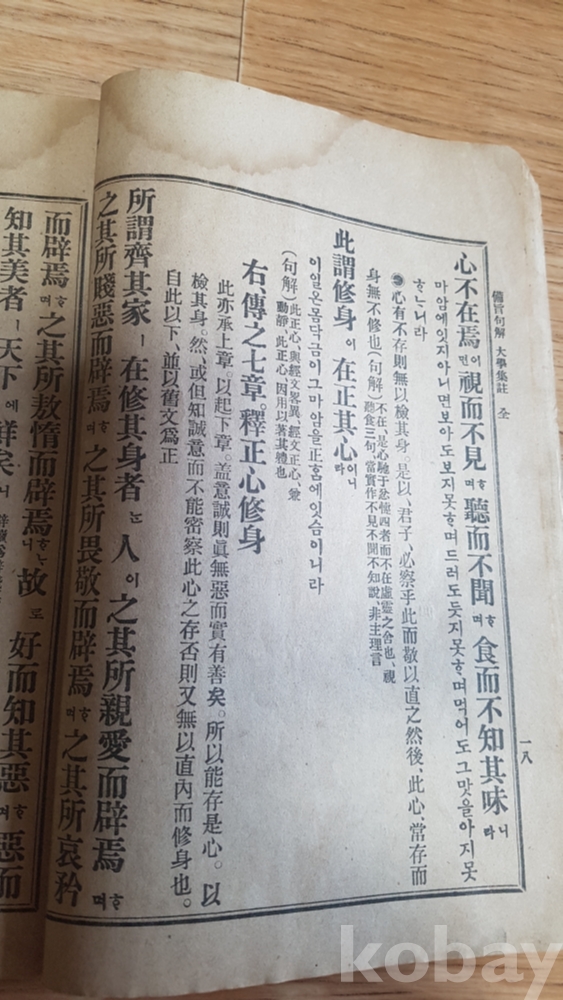 備旨句解 大學集註 全
一八
心不在焉이면視而不見며聽而不聞며食而不知其味니라
마암에잇지아니면보아도보지못며드러도듯지못며먹어도그맛을아지못
니라
心有不存則無以檢其身。是以、君子、必察乎此而敬以直之然後、此心、常存而
身無不修也(句解)不在、是心馳于忿懥四者而不在虛靈之舍也、視
聽食三句、當實作不見不聞不知說、非主理言
此謂修身이在正其心이니라
이일온몸닥금이그마암을正에잇슴이니라
(句解)此正心、與經文畧異、經文正心、兼
動靜、此正心、因用以著其體也
右、傳之七章。釋正心修身
此亦承上章。以起下章。盖意誠則眞無惡而實有善矣。所以能存是心。以
檢其身。然、或但知誠意而不能密察此心之存否則又無以直內而修身也。
自此以下、並以舊文爲正
所謂齊其家ㅣ在修其身者는人이之其所親愛而辟焉며
之其所賤惡而辟焉며之其所畏敬而辟焉며之其所哀矜
而辟焉며之其所敖惰而辟焉니故로好而知其惡며惡而
知其美者天下에鮮矣니
kobay